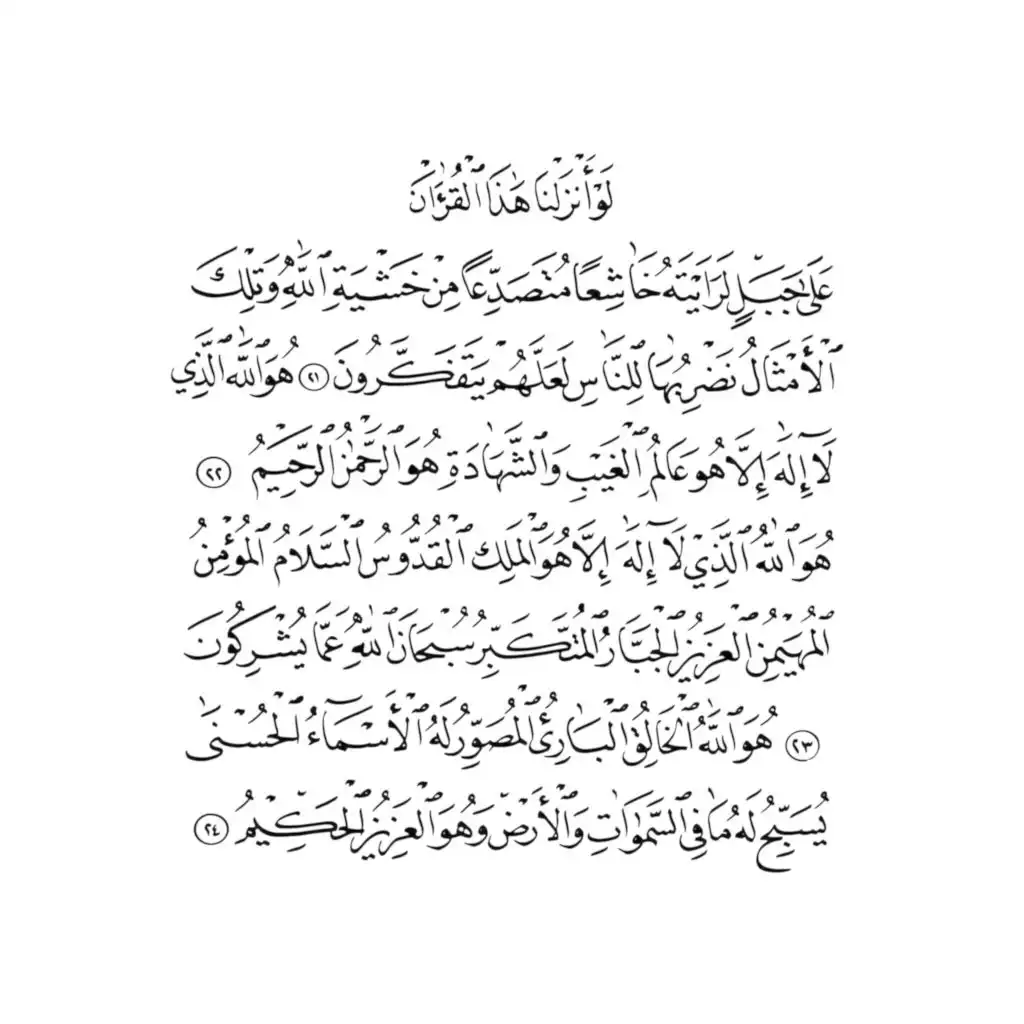 لَوْ أَنْزَلْنَا هَٰذَا ٱلْقُرْءَانَ
عَلَىٰ جَبَلٍ لَرَأَيْتَهُ خَاشِعًا مُتَصَدِّعًا مِنْ خَشْيَةِ ٱللَّهِ وَتِلْكَ
ٱلْأَمْثَالُ نَضْرِبُهَا لِلنَّاسِ لَعَلَّهُمْ يَتَفَكَّرُونَ ٢١ هُوَ ٱللَّهُ ٱلَّذِي
لَآ إِلَٰهَ إِلَّا هُوَ عَالِمُ ٱلْغَيْبِ وَٱلشَّهَادَةِ هُوَ ٱلرَّحْمَٰنُ ٱلرَّحِيمُ ٢٢
هُوَ ٱللَّهُ ٱلَّذِي لَآ إِلَٰهَ إِلَّا هُوَ ٱلْمَلِكُ ٱلْقُدُّوسُ ٱلسَّلَامُ ٱلْمُؤْمِنُ
ٱلْمُهَيْمِنُ ٱلْعَزِيزُ ٱلْجَبَّارُ ٱلْمُتَكَبِّرُ سُبْحَانَ ٱللَّهِ عَمَّا يُشْرِكُونَ
٢٣ هُوَ ٱللَّهُ ٱلْخَالِقُ ٱلْبَارِئُ ٱلْمُصَوِّرُ لَهُ ٱلْأَسْمَآءُ ٱلْحُسْنَىٰ
يُسَبِّحُ لَهُ مَا فِي ٱلسَّمَوَاتِ وَٱلْأَرْضِ وَهُوَ ٱلْعَزِيزُ ٱلْحَكِيمُ ٢٤